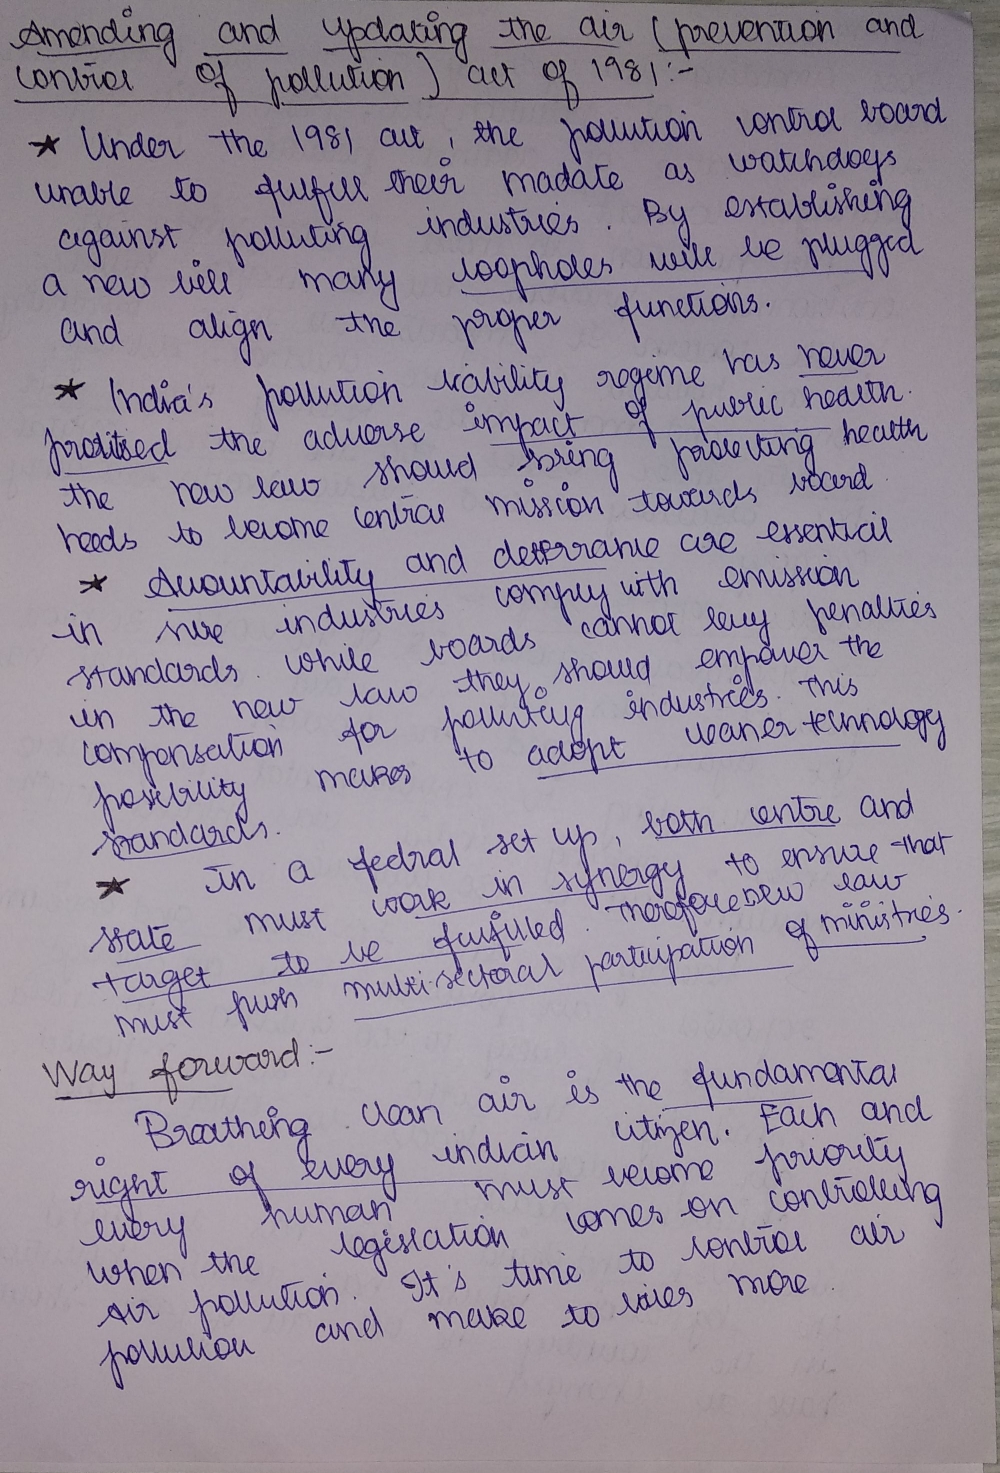 Amending and updating the air (prevention and
control of pollution) act of 1981:-
★ Under the 1981 act, the pollution control board
unable to fulfill their madate as watchdogs
against polluting industries. By establishing
a new bill many loopholes will be plugged
and align the proper functions.
★ India's pollution liability regime has never
the adverse impact of public health.
the new law should bring protecting health
needs to become central mission towards board
★ Accountability and deterrance are essential
in industries comply with emission
standards. while boards cannot levy penalties
in the new law they should empower the
compensation for polluting industries. This
posibility makes to adopt cleaner technology
standards.
★ In a fedral set up, both centre and
state must work in synergy to ensure that
target to be fulfilled. Therefore new law
must push multi-sectoral participation of ministries.
Way forward:-
Breathing clean air is the fundamental
right of every indian citizen. Each and
every human must become priority
when the legislation comes on controlling
air pollution. It's time to control air
pollution and make to lives more.